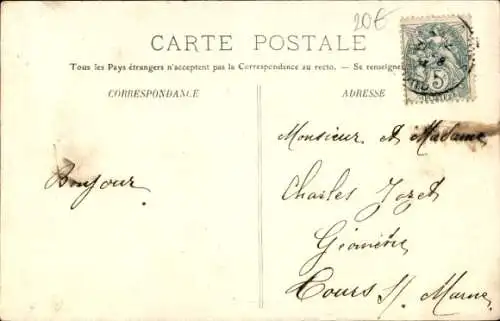 20€
CARTE POSTALE
Tous les Pays étrangers n'acceptent pas la Correspondance au recto. — Se renseigner
CORRESPONDANCE
ADRESSE
5
Monsieur et Madame
Bonjour
Charles Jozet
Géomètre
Cours S/ Marne